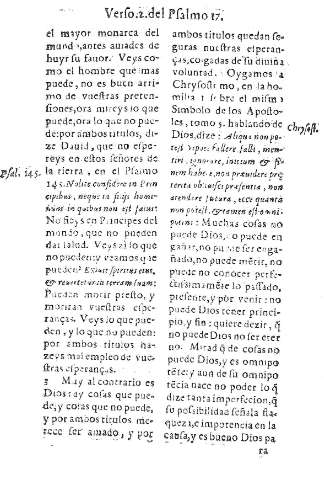 Verso.2. del Psalmo 17.
el mayor monarca del
mundo, antes auiades de
huyr su fauor. Veys co-
mo el hombre que mas
puede, no es buen arri-
mo de vuestras preten-
siones, ora mireys lo que
puede, ora lo que no pue-
de: por ambos titulos, di-
ze Dauid, que no espe-
reys en estos señores de
la tierra, en el Psalmo
145. Nolite confidere in Prin-
cipibus, neque in filijs homi-
nũs in quibus non est salus:
No fieys en Principes del
mundo, que no pueden
dar salud. Veys ai lo que
no pueden: y veamos que
pueden? Exiuit spiritus eius,
& reuertetur in terram suam:
Pueden morir presto, y
moriran vuestras espe-
ranças. Veys lo que pue-
den, y lo que no pueden:
por ambos titulos ha-
zeys mal empleo de vue-
stras esperanças.
3 May al contrario es
Dios: ay cosas que pue-
de, y cosas que no puede,
y por ambos titulos me-
rece ser amado, y por
Psal. 145.
ambos titulos quedan se-
guras nuestras esperan-
ças, colgadas de su diuina
voluntad. Oygamos a
Chrysostomo, en la ho-
milia 1 sobre el mismo
Simbolo de los Aposto-
les, tomo 5. hablando de
Dios, dize: Aliqua non po-
falli, men-
tiri, ignorare, initium & fi-
nem habere, non præuidere præ-
terita obliuisci præsentia, non
attendere futura, ecce quanta
non potest, & tamen est omni-
potens: Muchas cosas no
puede Dios, no puede en-
gañar, no puede ser enga-
ñado, no puede mẽtir, no
puede no conocer perfe-
ctissimamẽte lo passado,
presente, y por venir: no
puede Dios tener princi-
pio, y fin: quiere dezir, q̃
no puede Dios no ser eter
no. Mirad q̃ de cosas no
puede Dios, y es omnipo
tẽte: y aun de su omnipo
tẽcia nace no poder lo q̃
dize tanta imperfecion, q̃
so possibilidad señala fla-
queza, e impotencia en la
causa, y es bueno Dios pa
ra
Chrysost.